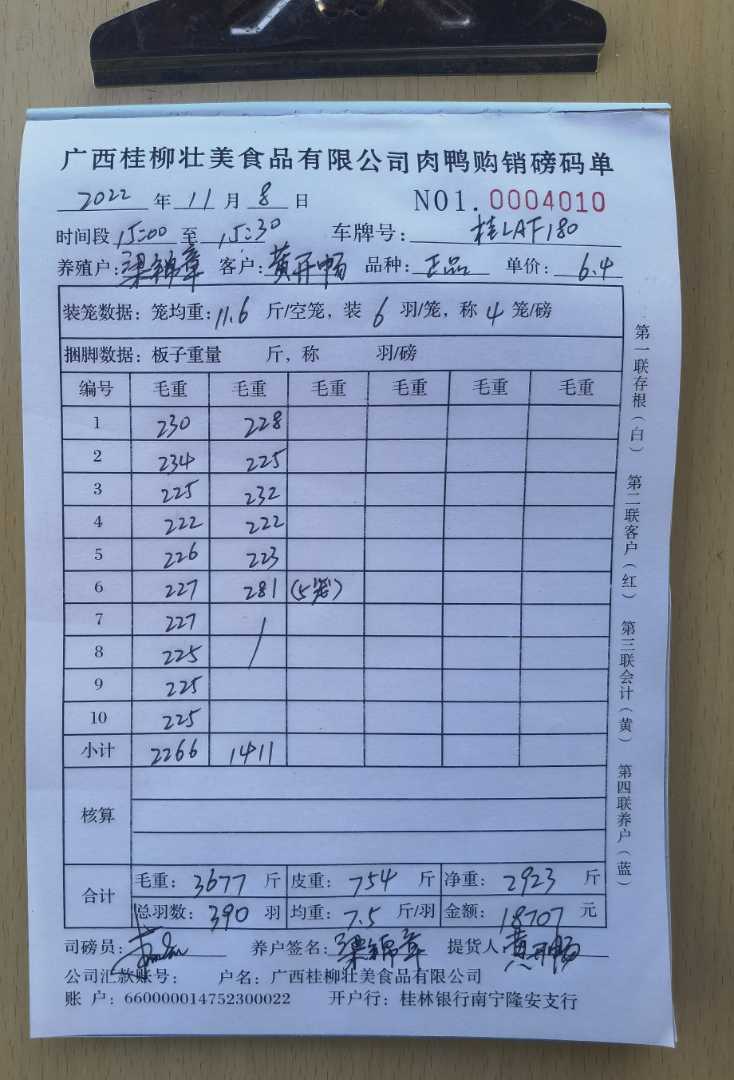 广西桂柳壮美食品有限公司肉鸭购销磅码单
2022 年 11 月 8 日 NO1. 0004010
时间段 15:00 至 15:30 车牌号: 桂LAF180
养殖户: 梁锦章 客户: 黄开畅 品种: 正品 单价: 6.4
装笼数据: 笼均重: 11.6 斤/空笼, 装 6 羽/笼, 称 4 笼/磅
捆脚数据: 板子重量 斤, 称 羽/磅
编号 毛重 毛重 毛重 毛重 毛重 毛重
1 230 228
2 234 225
3 225 232
4 222 222
5 226 223
6 227 281 (5笼)
7 227 /
8 225
9 225
10 225
小计 2266 1411
核算
合计
毛重: 3677 斤 皮重: 754 斤 净重: 2923 斤
总羽数: 390 羽 均重: 7.5 斤/羽 金额: 18707 元
司磅员: 养户签名: 梁锦章 提货人: 黄开畅
公司汇款账号: 户名: 广西桂柳壮美食品有限公司
账 户: 660000014752300022 开户行: 桂林银行南宁隆安支行
第一联存根(白) 第二联客户(红) 第三联会计(黄) 第四联养户(蓝)